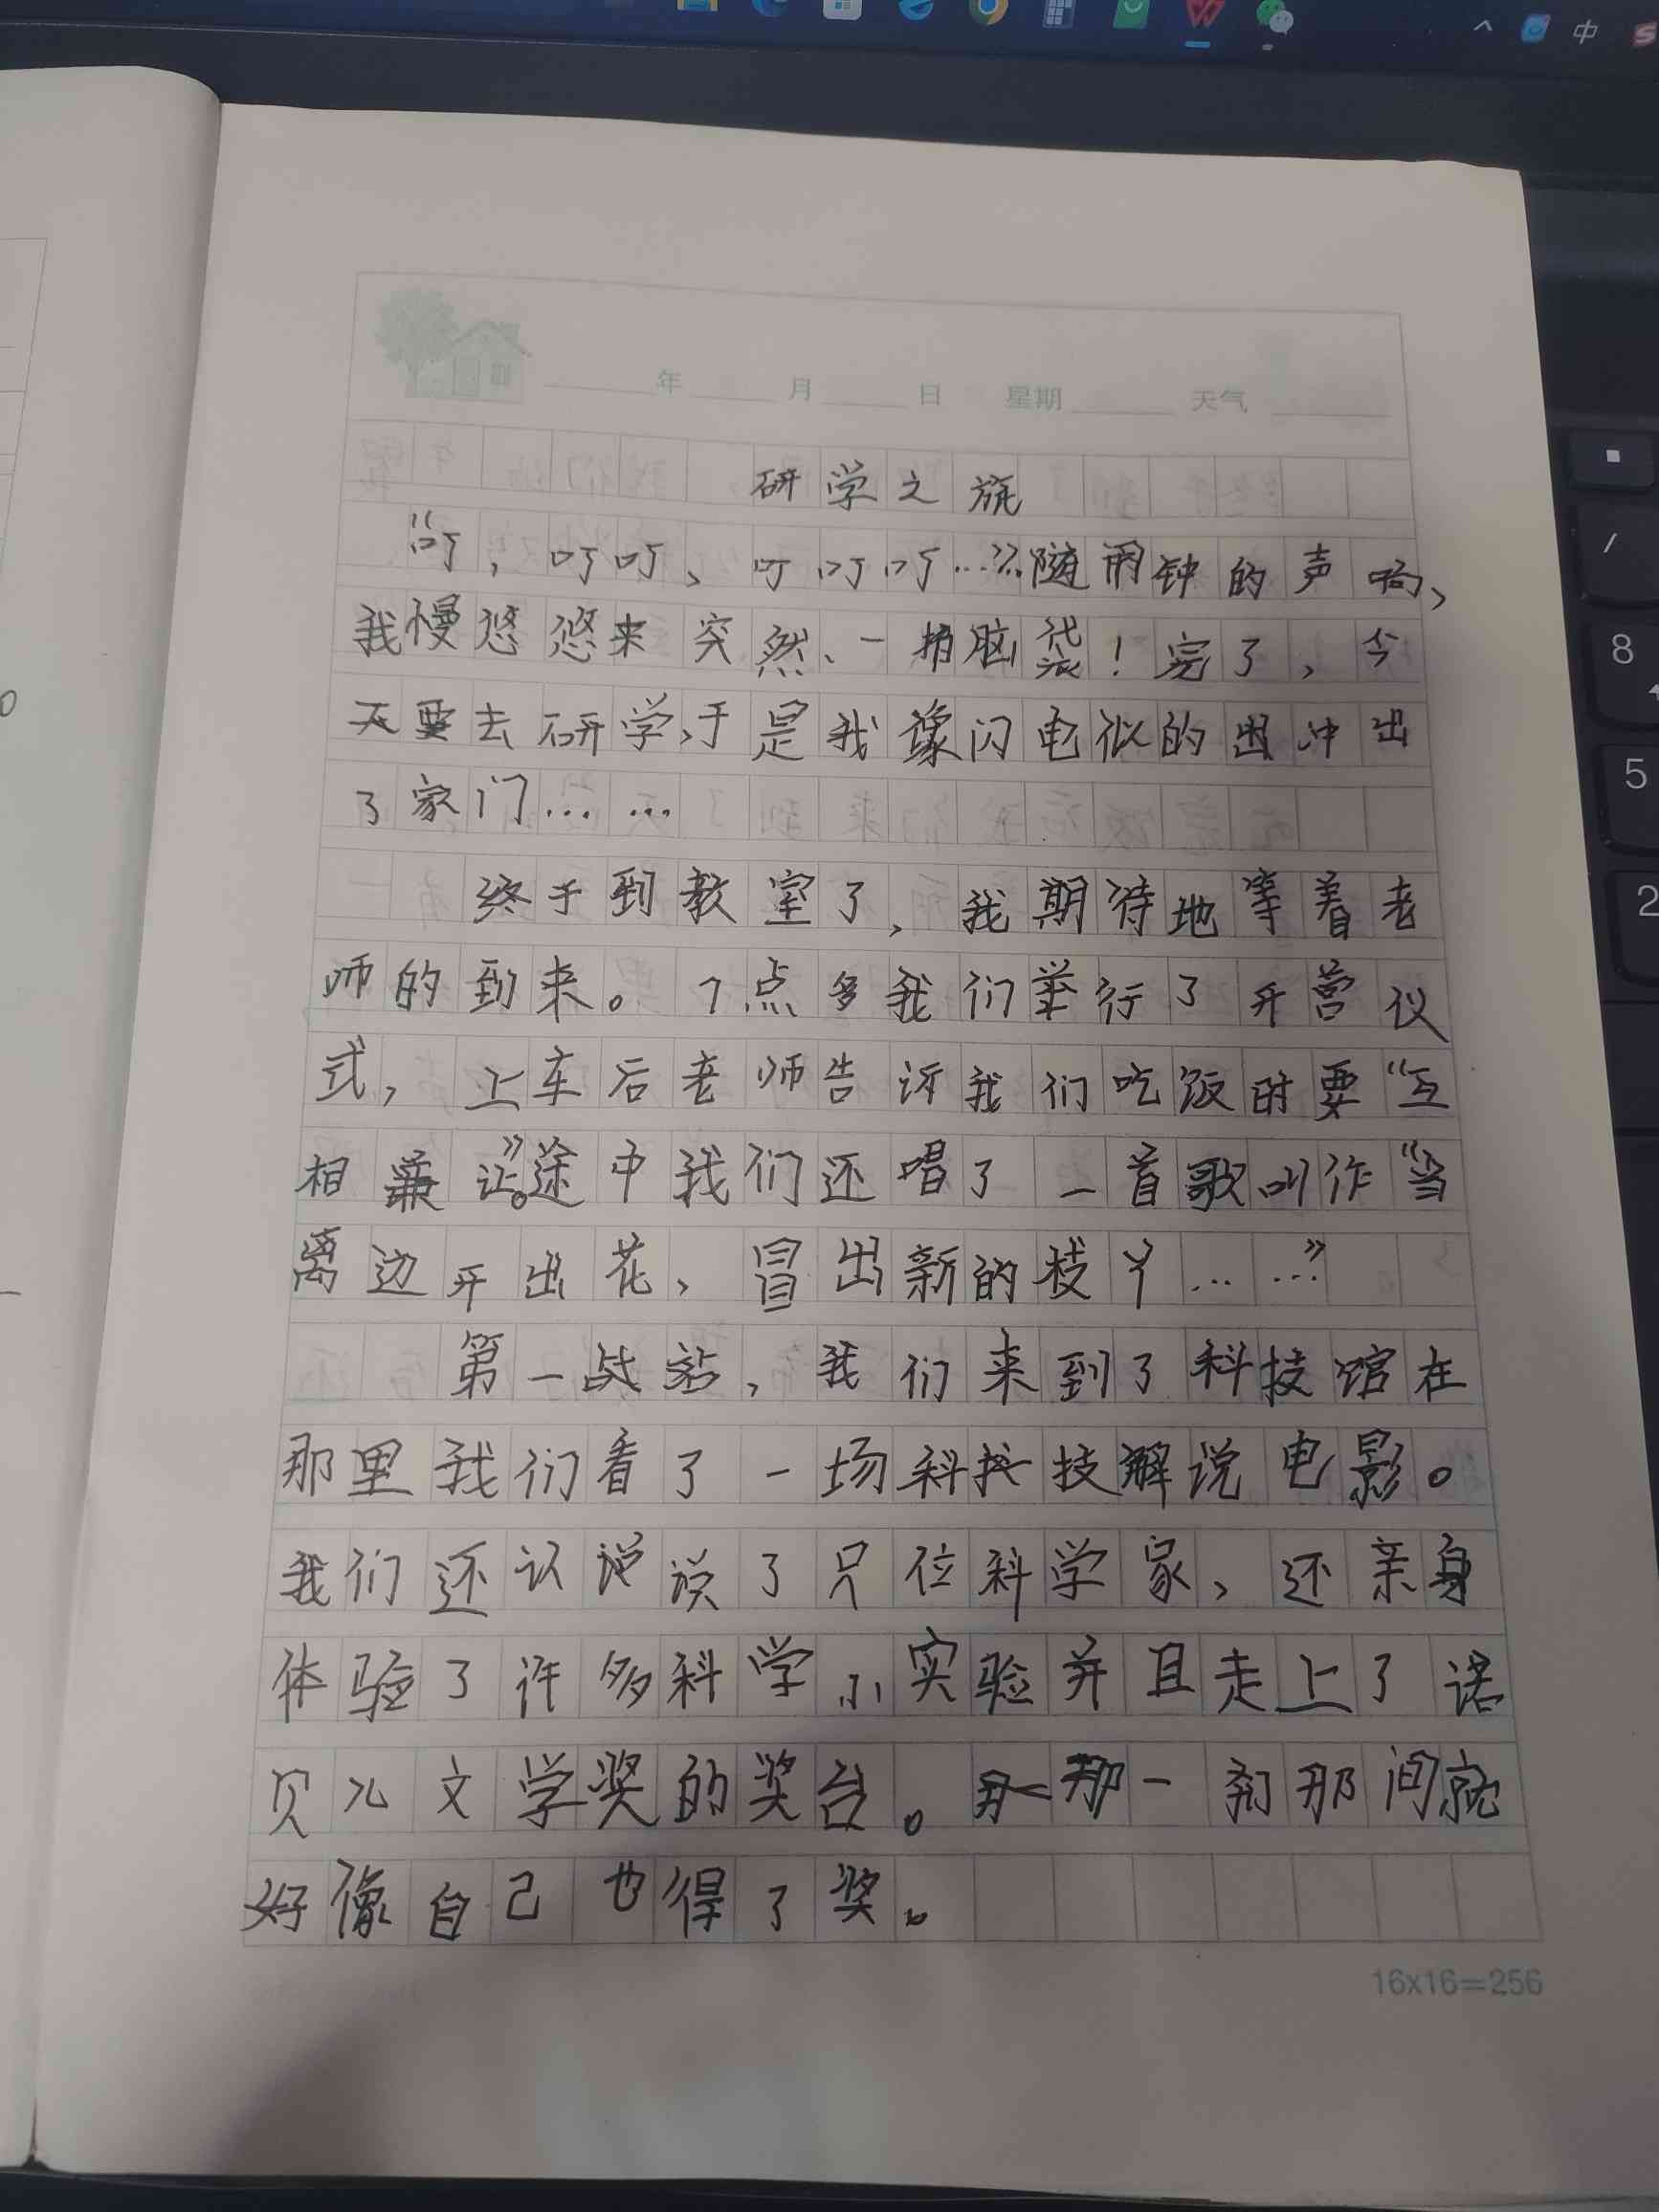 中
年 月 日 星期 天气
研学之旅
“叮，叮叮、叮叮叮…”。随闹钟的声响、
我慢悠悠来突然、一拍脑袋！完了，今
天要去研学，于是我像闪电似的冲出
了家门……
终于到教室了，我期待地等着老
师的到来。7点多我们举行了开营仪
式，上车后老师告诉我们吃饭时要“互
相兼让”。途中我们还唱了一首歌叫作“当
离边开出花，冒出新的枝丫……”
第一站，我们来到了科技馆在
那里我们看了一场科技解说电影。
我们还认识了几位科学家，还亲身
体验了许多科学小实验并且走上了诺
贝儿文学奖的奖台。那一刹那间就
好像自己也得了奖。
16x16=256
/
8
5
2